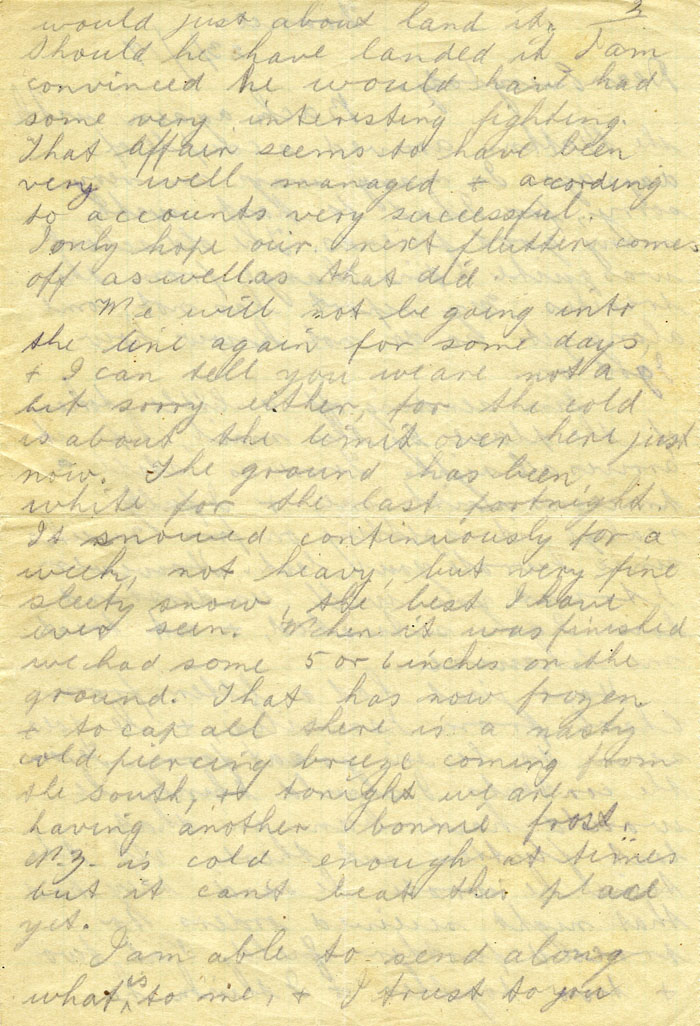 3
would just about land it.
Should he have landed it I am
convinced he would have had
some very interesting fighting.
That affair seems to have been
very well managed + according
to accounts very successful.
I only hope our next flutter comes
off as well as that did
We will not be going into
the line again for some days
+ I can tell you we are not a
bit sorry either, for the cold
is about the limit over here just
now. The ground has been
white for the last fortnight.
It snowed continuously for a
week, not heavy, but very fine
sleety snow, the best I have
ever seen. When it was finished
we had some 5 or 6 inches on the
ground. That has now frozen
+ to cap all there is a nasty
cold piercing breeze coming from
the south, + tonight we are
having another bonnie frost.
N.Z. is cold enough at times
but it can't beat this place
yet.
I am able to send along
what is to me, + I trust to you